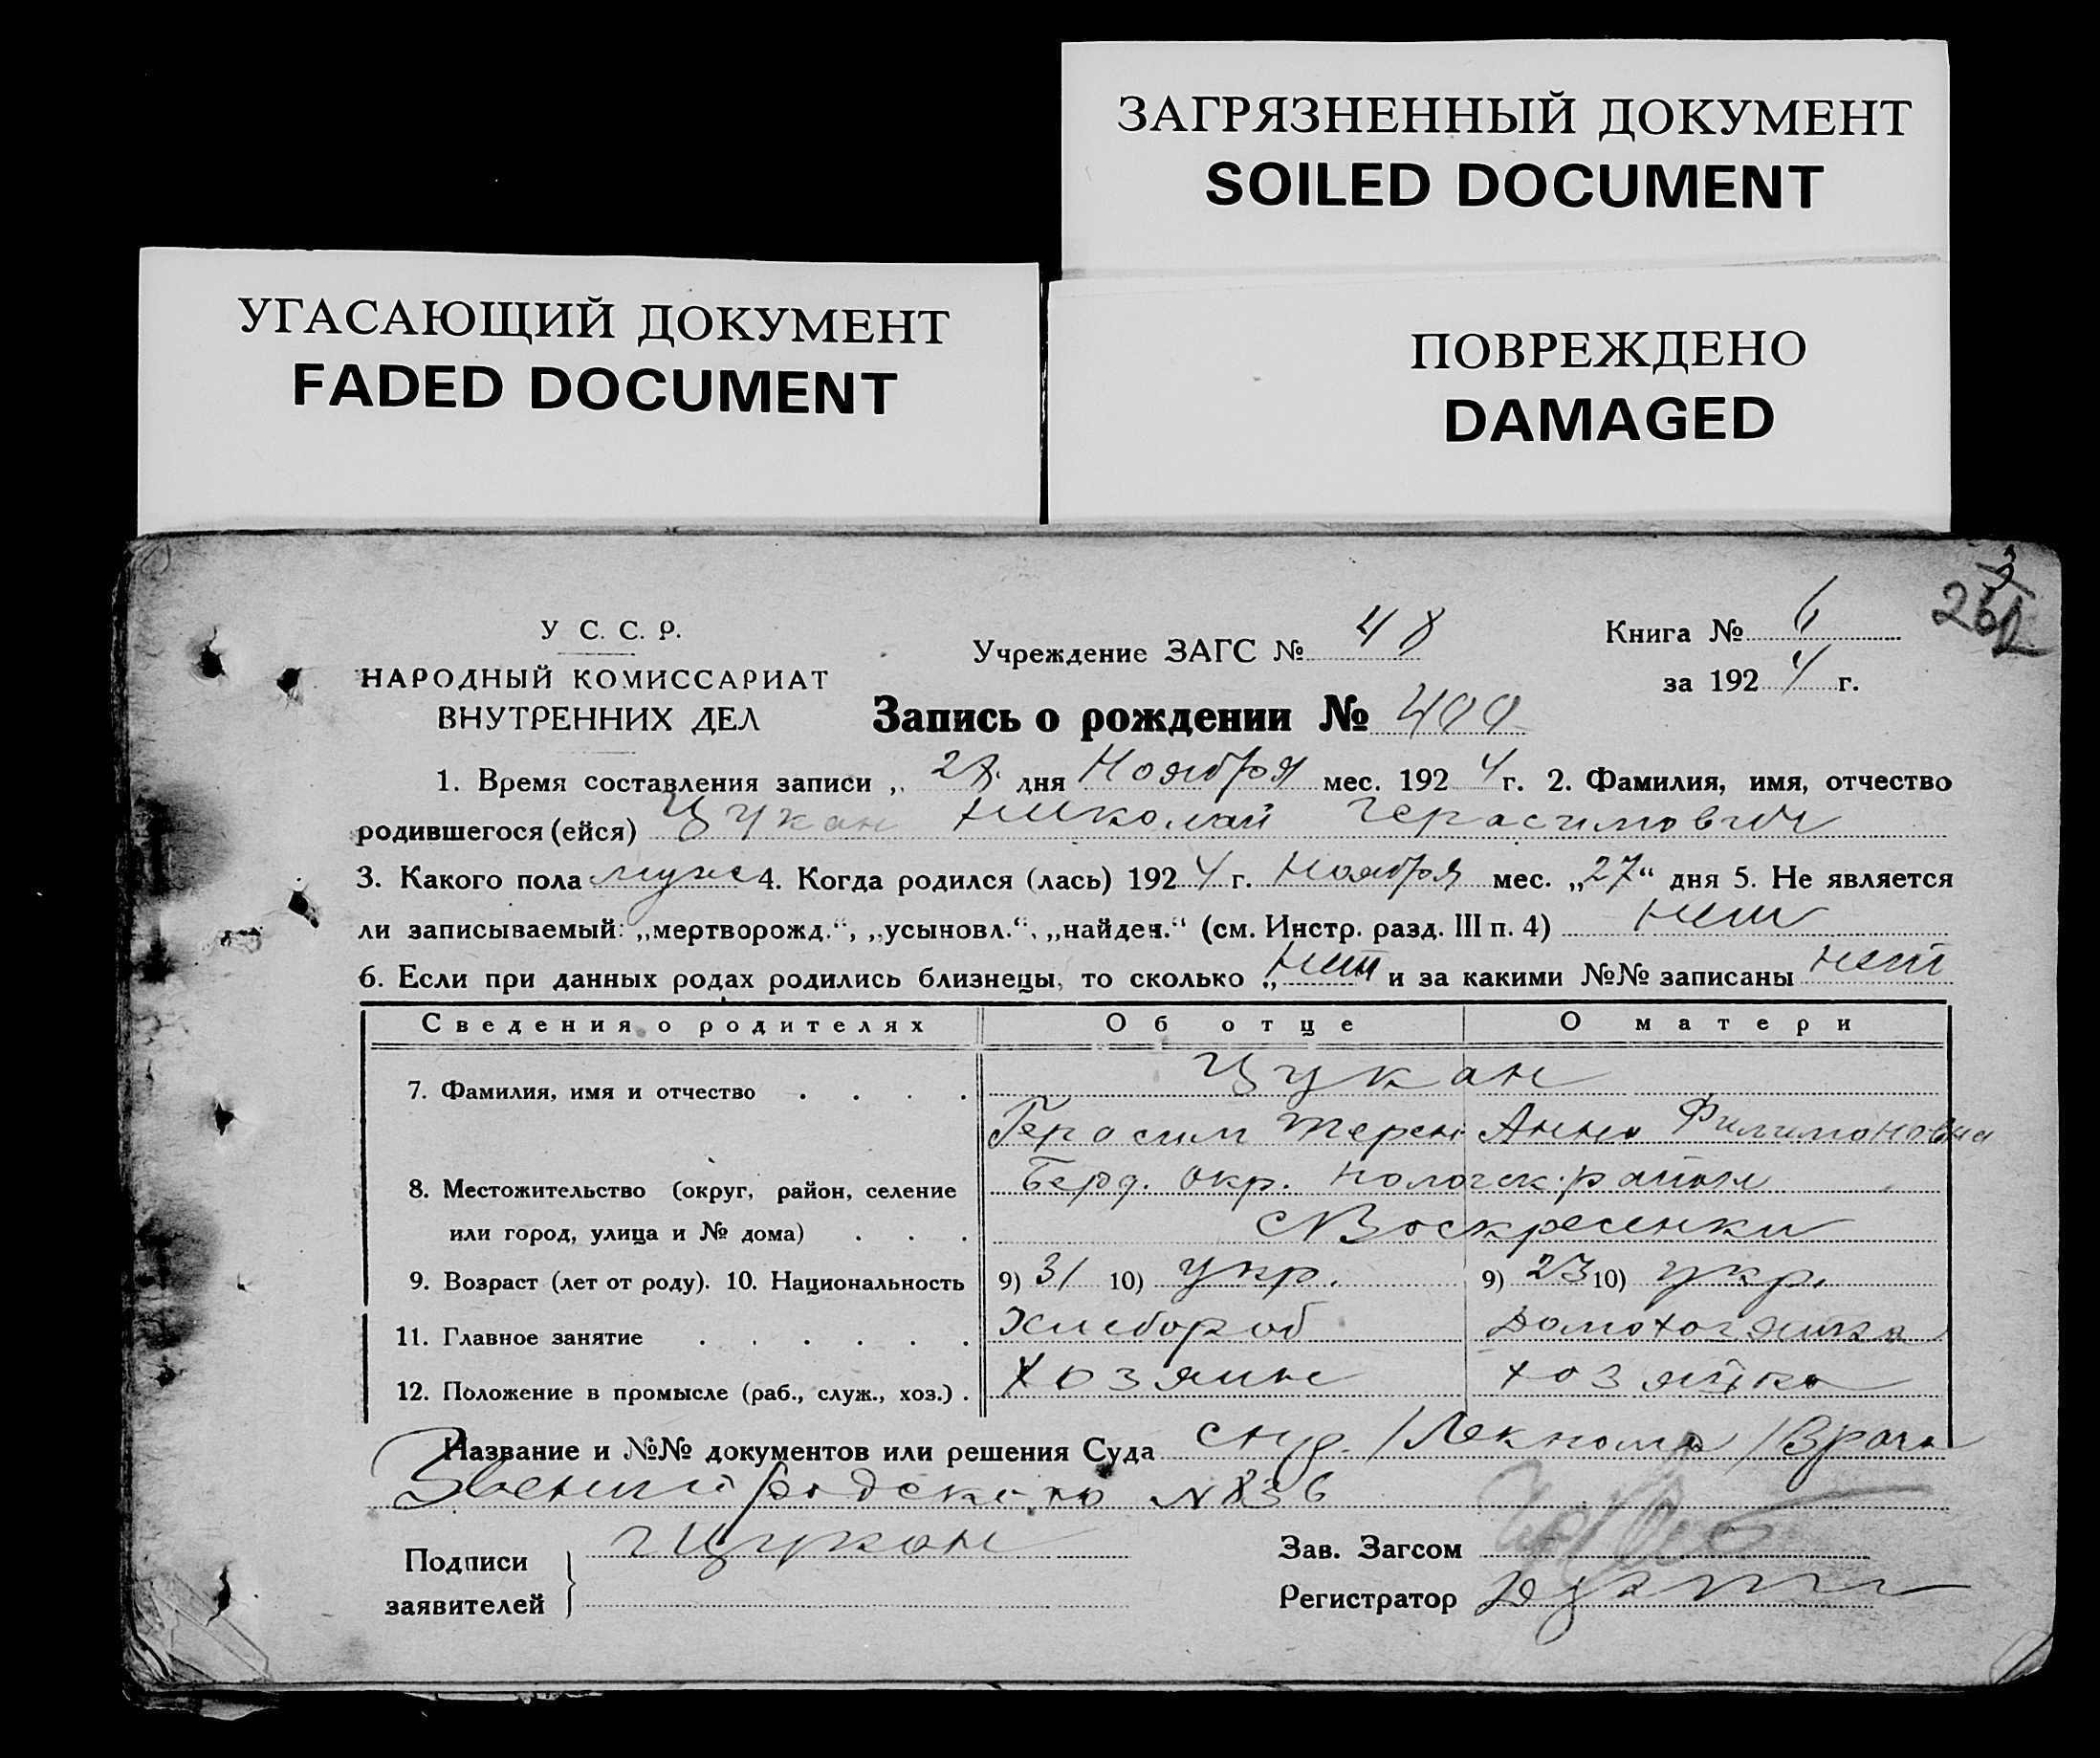 ЗАГРЯЗНЕННЫЙ ДОКУМЕНТ
SOILED DOCUMENT
УГАСАЮЩИЙ ДОКУМЕНТ
FADED DOCUMENT
ПОВРЕЖДЕНО
DAMAGED
У С. С. Р.
НАРОДНЫЙ КОМИССАРИАТ
ВНУТРЕННИХ ДЕЛ
Учреждение ЗАГС № 48
Книга № 6
за 1924 г.
Запись о рождении № 499
1. Время составления записи „ дня Ноября мес. 1924 г. 2. Фамилия, имя, отчество
родившегося (ейся) Цукан Николай Герасимович
3. Какого пола муж 4. Когда родился (лась) 1924 г. Ноября мес. „27“ дня 5. Не является
ли записываемый: „мертворожд.“, „усыновл.“, „найден.“ (см. Инстр. разд. III п. 4) нет
6. Если при данных родах родились близнецы, то сколько „нет и за какими №№ записаны нет
Сведения о родителях Об отце О матери
7. Фамилия, имя и отчество . . . . Цукан
Герасим Терен Анна Филимоновна
8. Местожительство (округ, район, селение Берд. окр. пологск. район
или город, улица и № дома) . . . с Воскресенки
9. Возраст (лет от роду). 10. Национальность 9) 31 10) укр. 9) 23 10) укр.
11. Главное занятие . . . . . . Хлебороб Домохозяйка
12. Положение в промысле (раб., служ., хоз.) . хозяин хозяйка
Название и №№ документов или решения Суда /Лекпома /Врача
N 836
Подписи г Цукан
заявителей
Зав. Загсом
Регистратор